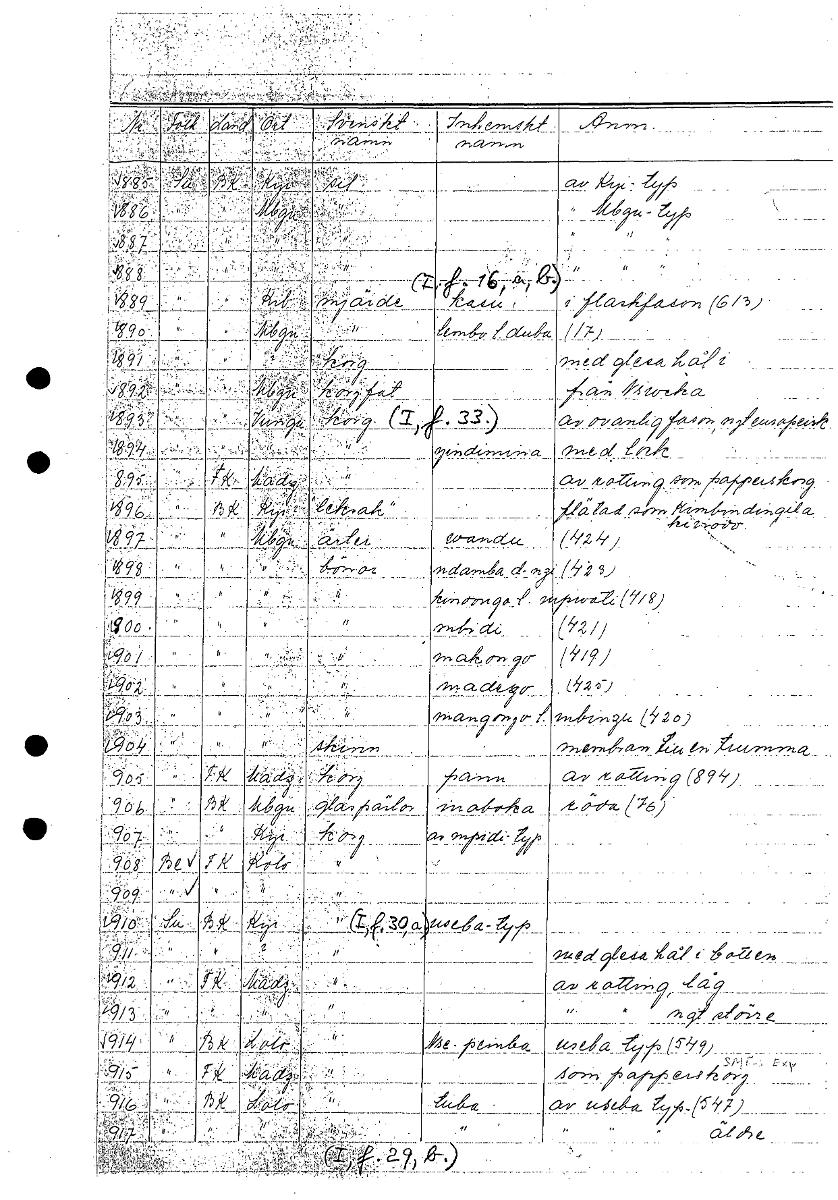 Nr Folk Land Ort Svenskt namn Inhemskt namn Anm.
1885 Su BK Kyi sil av Kyi-typ
1886 " " Mbgu " " Mbgu-typ
1887 " " " " " " "
1888 " " " " " " "
(I. f. 16, a, b.)
1889 " " Kib mjärde kasu i flaskfason (613)
1890 " " Mbgu " lembo l. duba (17)
1891 " " ? korg med glesa hål i
1892 " " Mbgu korgfat från
1893 " " korg (I, f. 33.) av ovanlig fason, ngt europeisk
1894 " " " yindimina med lock
895 " FK Madz " av rotting som papperskorg
1896 " BK Kyi "leksak" flätad som Kimbindingila
1897 " " Mbgu ärter wandu (424)
1898 " " " bönor ndamba d. ngi (423)
1899 " " " " l. mpwati (418)
1900 " " " " mbidi (421)
1901 " " " " makongo (419)
1902 " " " " (425)
1903 " " " " mangongo l. mbingu (420)
1904 " " " skinn membran till en trumma
905 " FK Madz korg pann av rotting (894)
906 " BK Mbgu glaspärlor maboka röda (76)
907 " Kyi korg av mpidi-typ
908 Be ✓ FK Kolo "
909 " ✓ " " "
1910 Su BK Kyi " (I, f. 30, a) useba-typ
911 " " ? med glesa hål i botten
1912 " FK Madz " av rotting, låg
1913 " " " " " " ngt större
1914 " BK Lolo " Nse-pemba useba typ (549)
915 " FK Madz " som papperskorg
916 " BK Lolo " tuba av useba typ. (547)
917 " " " " " " " " äldre
(I, f. 29, b.)